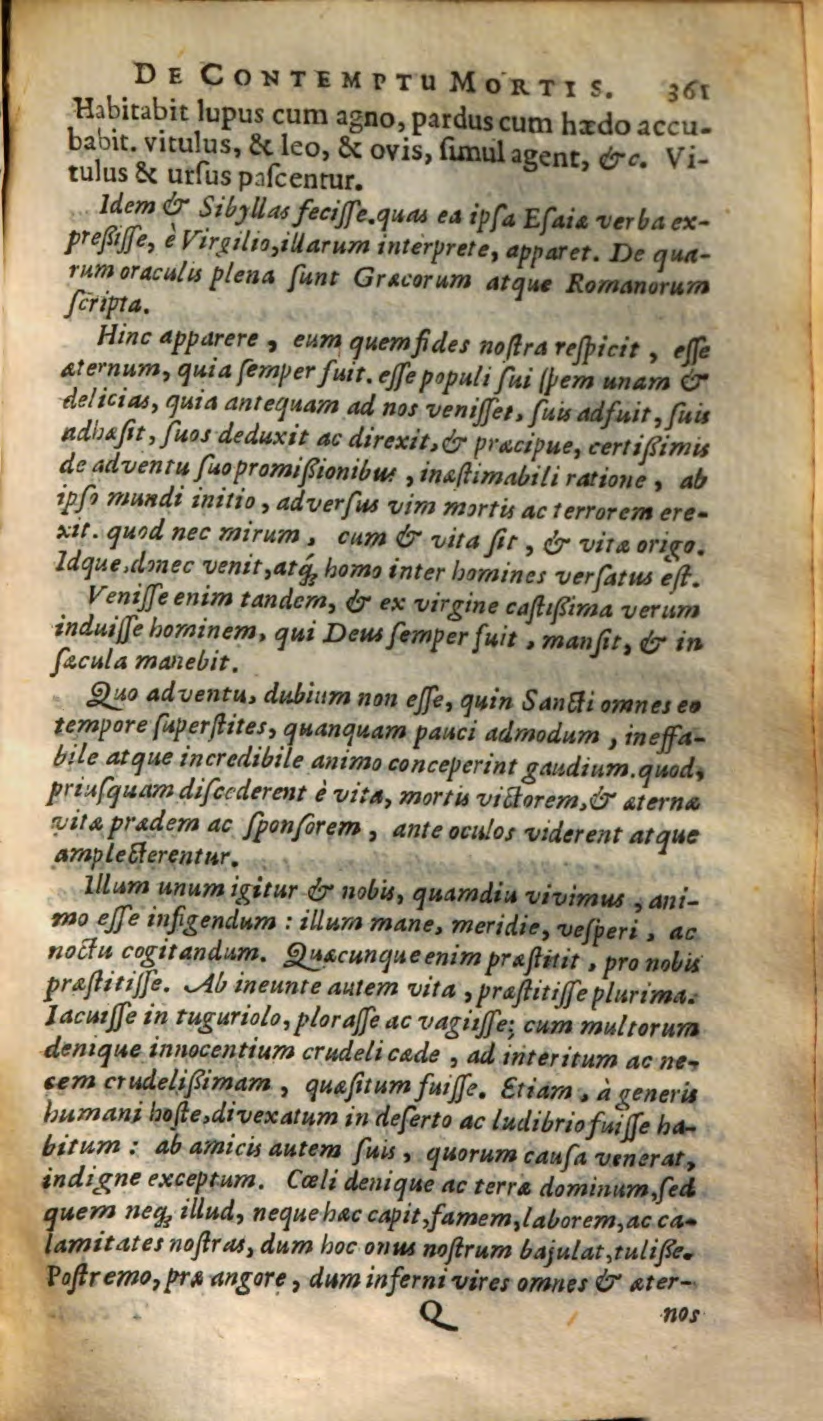 DE CONTEMPTU MORTIS. 361
Habitabit lupus cum agno, pardus cum hædo accu-
babit. vitulus, & leo, & ovis, ſimul agent, &c. Vi-
tulus & urſus paſcentur.
Idem & Sibyllas feciſſe. quas ea ipſa Eſaiæ verba ex-
preßiſſe, è Virgilio, illarum interprete, apparet. De qua-
rum oraculis plena ſunt Græcorum atque Romanorum
ſcripta.
Hinc apparere, eum quem fides noſtra reſpicit, eſſe
æternum, quia ſemper fuit. eſſe populi ſui ſpem unam &
delicias, quia antequam ad nos veniſſet, ſuis adfuit, ſuis
adhæſit, ſuos deduxit ac direxit, & præcipue, certißimis
de adventu ſuo promißionibus, inæſtimabili ratione, ab
ipſo mundi initio, adverſus vim mortis ac terrorem ere-
xit. quod nec mirum, cum & vita ſit, & vitæ origo.
Idque, donec venit, atq́ꝫ homo inter homines verſatus eſt.
Veniſſe enim tandem, & ex virgine caſtißima verum
induiſſe hominem, qui Deus ſemper fuit, manſit, & in
ſæcula manebit.
Quo adventu, dubium non eſſe, quin Sancti omnes eo
tempore ſuperſtites, quanquam pauci admodum, ineffa-
bile atque incredibile animo conceperint gaudium. quod,
priuſquam diſcederent è vita, mortis victorem, & æternæ
vitæ prædem ac ſponſorem, ante oculos viderent atque
amplecterentur.
Illum unum igitur & nobis, quamdiu vivimus, ani-
mo eſſe infigendum : illum mane, meridie, veſperi, ac
noctu cogitandum. Quæcunque enim præſtitit, pro nobis
præſtitiſſe. Ab ineunte autem vita, præſtitiſſe plurima.
Iacuiſſe in tuguriolo, ploraſſe ac vagiiſſe; cum multorum
denique innocentium crudeli cæde, ad interitum ac ne-
cem crudelißimam, quæſitum fuiſſe. Etiam, à generis
humani hoſte, divexatum in deſerto ac ludibrio fuiſſe ha-
bitum : ab amicis autem ſuis, quorum cauſa venerat,
indigne exceptum. Cœli denique ac terræ dominum, ſed
quem neqꝫ illud, neque hæc capit, famem, laborem, ac ca-
lamitates noſtras, dum hoc onus noſtrum bajulat, tuliße.
Poſtremo, præ angore, dum inferni vires omnes & æter-
Q nos